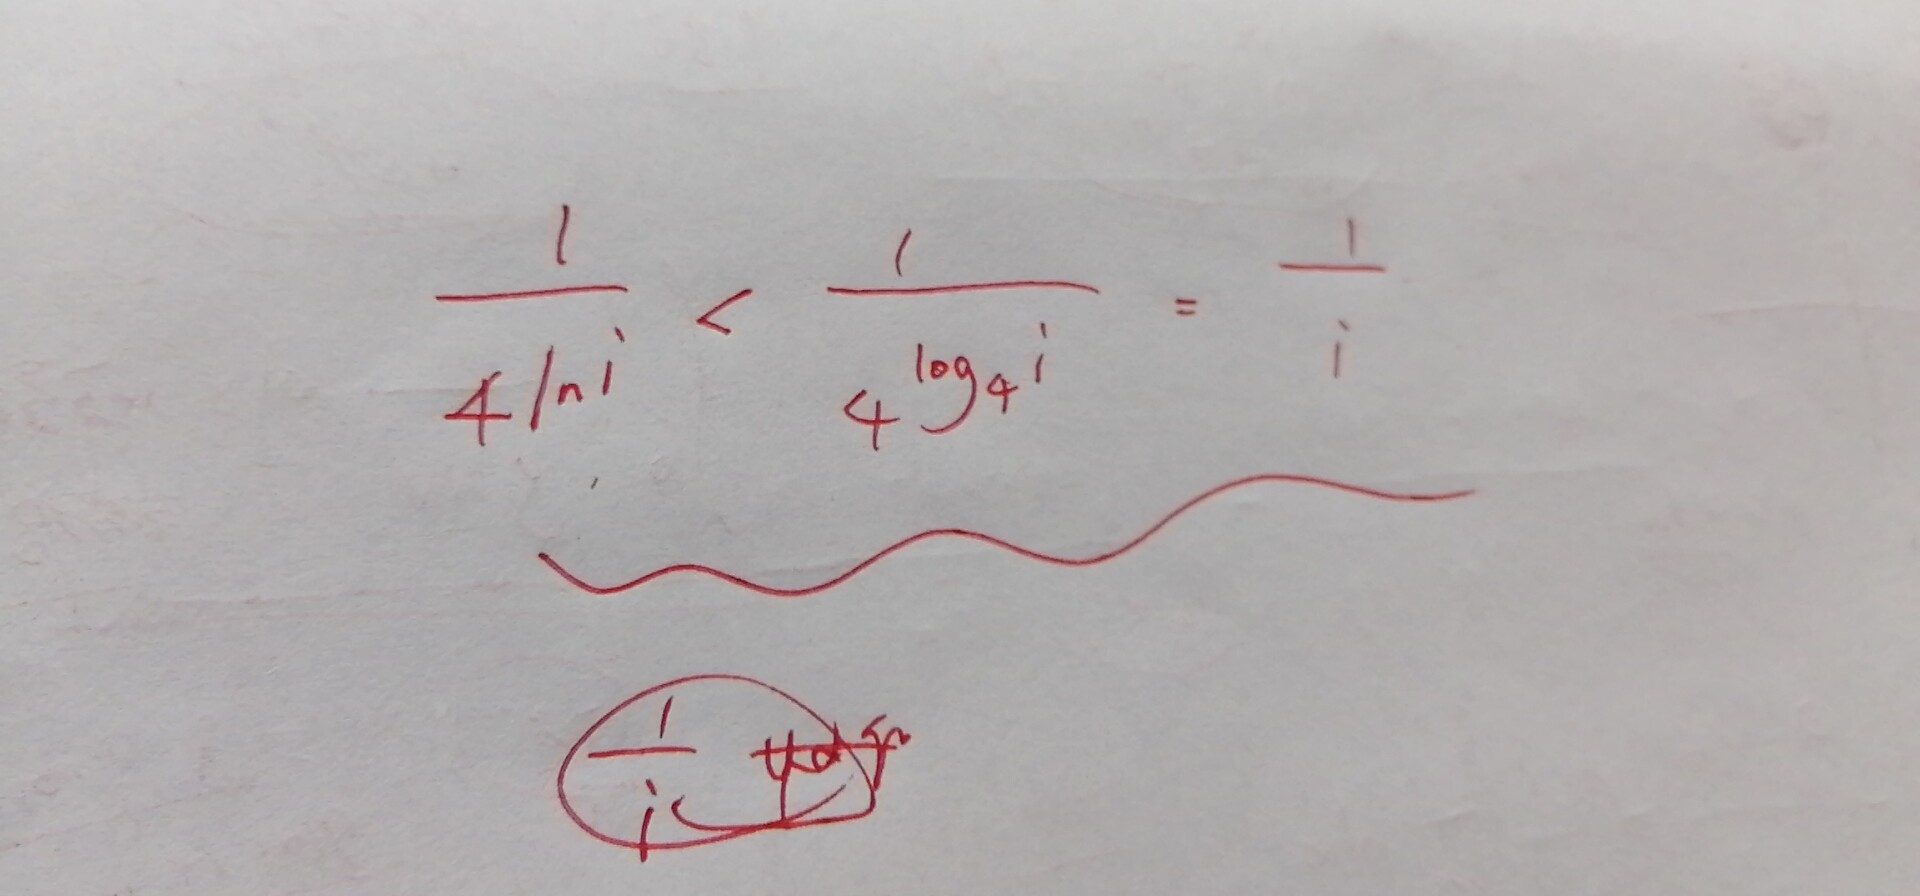 1/4^ln i < 1/4^log₄ i = 1/i
1/i